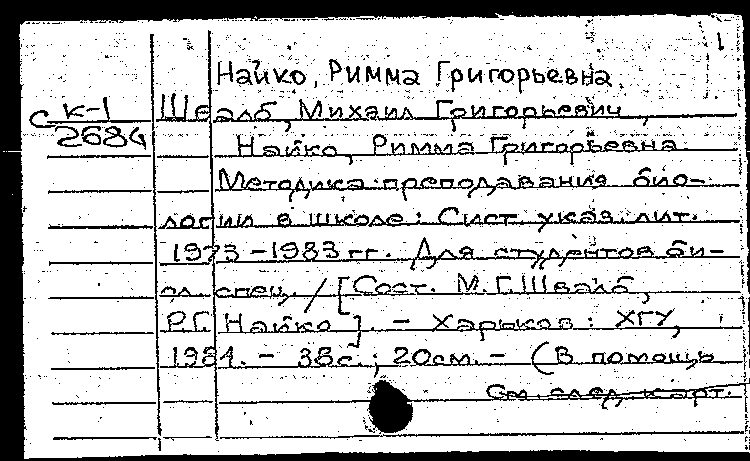 1
Найко, Римма Григорьевна
С К-1 Швалб, Михаил Григорьевич,
2684 Найко, Римма Григорьевна
Методика преподавания био-
логии в школе: Сист. указ. лит.
1973-1983 гг. Для студентов би-
ол. спец. / [Сост. М.Г. Швалб,
Р.Г. Найко]. - Харьков: ХГУ,
1984. - 38с.; 20см. - (В помощь
См. след. карт.